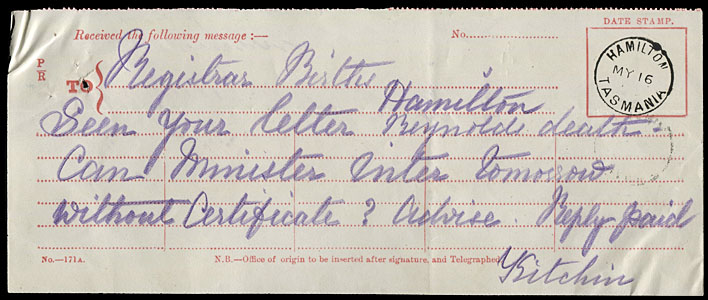 DATE STAMP.
Received the following message :—
No.
PR
TO
Registrar Births
Hamilton
HAMILTON
MY 16
TASMANIA
Seen your letter Reynolds death.
Can Minister inter tomorrow
without Certificate? Advise. Reply paid
Kitchin
No.—171A.
N.B.—Office of origin to be inserted after signature, and Telegraphed